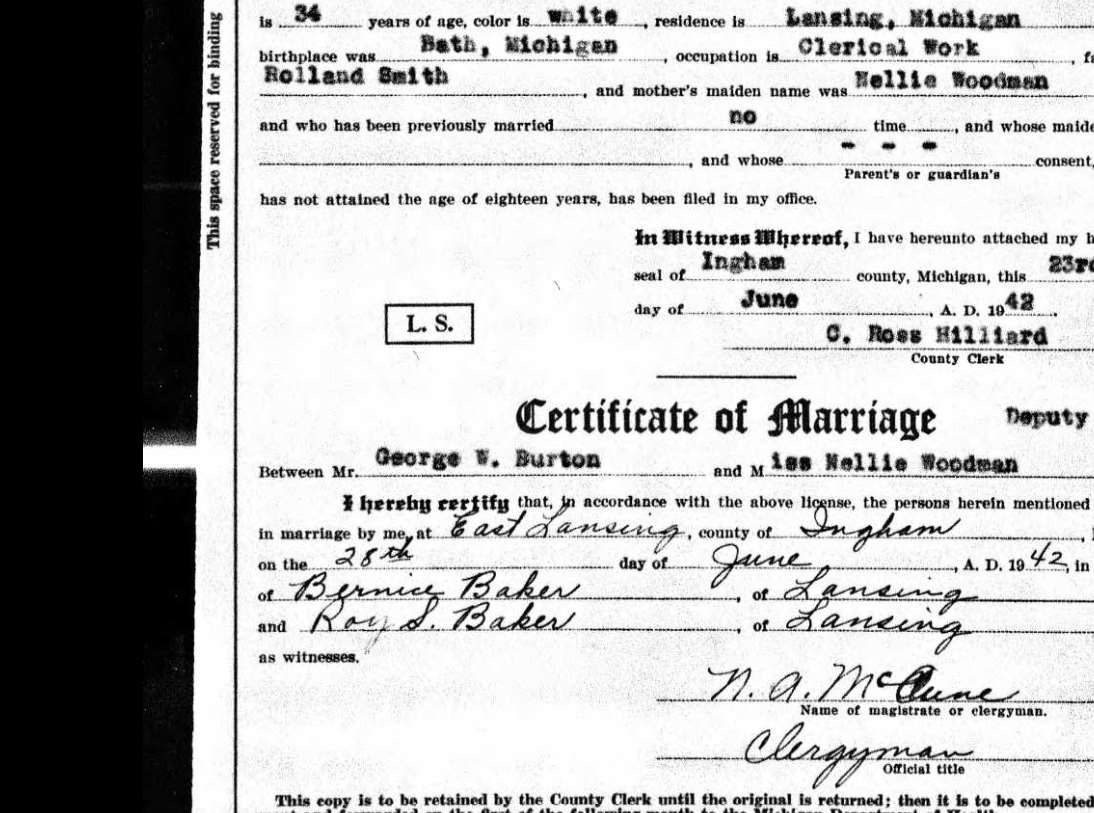 This space reserved for binding
is 34 years of age, color is white, residence is Lansing, Michigan
birthplace was Bath, Michigan, occupation is Clerical Work, fa
Rolland Smith, and mother's maiden name was Nellie Woodman
and who has been previously married no time, and whose maide
- - -
, and whose consent,
Parent's or guardian's
has not attained the age of eighteen years, has been filed in my office.
In Witness Whereof, I have hereunto attached my h
seal of Ingham county, Michigan, this 23rd
day of June, A. D. 1942.
L. S.
C. Ross Hilliard
County Clerk
Certificate of Marriage Deputy
Between Mr. George W. Burton and Miss Nellie Woodman
I hereby certify that, in accordance with the above license, the persons herein mentioned
in marriage by me, at East Lansing, county of Ingham,
on the 28th day of June, A. D. 1942, in
of Bernice Baker, of Lansing
and Roy S. Baker, of Lansing
as witnesses.
N. A. McCune
Name of magistrate or clergyman.
Clergyman
Official title
This copy is to be retained by the County Clerk until the original is returned; then it is to be completed
ment and forwarded on the first of the following month to the Michigan Department of Health